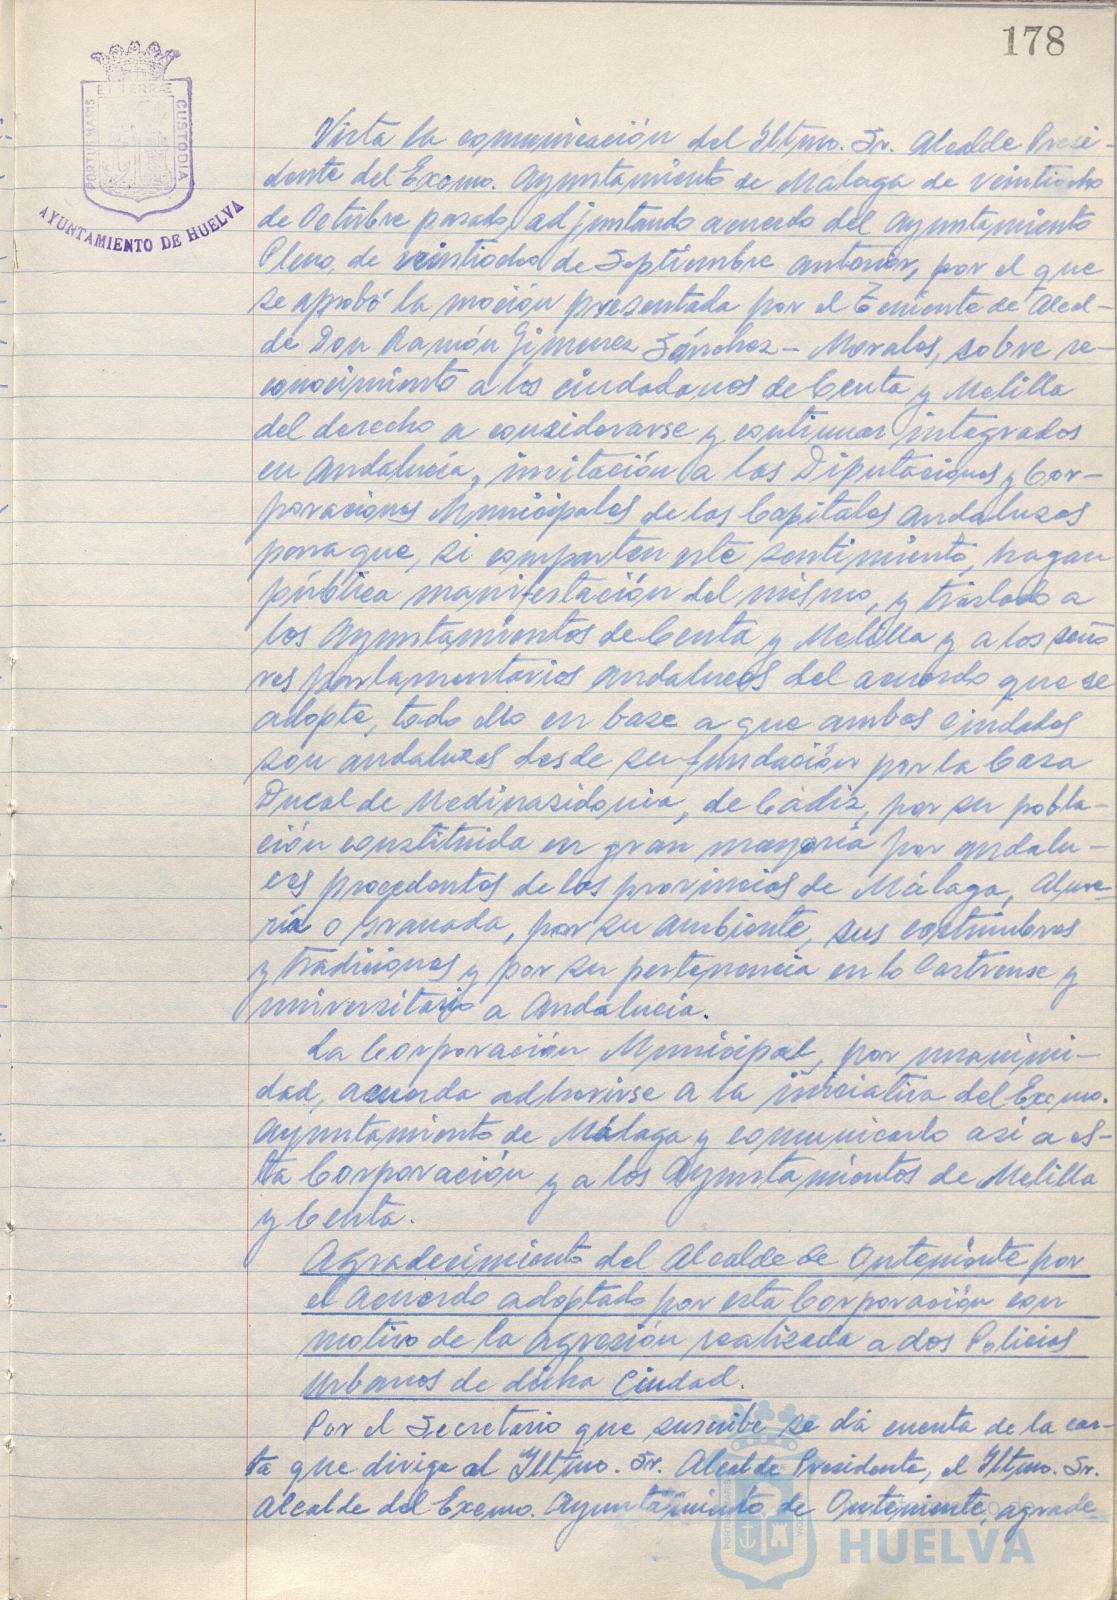 178
PORTUS MARIS
ET TERRÆ
CUSTODIA
AYUNTAMIENTO DE HUELVA
Vista la comunicación del Iltmo. Sr. Alcalde Presi-
dente del Excmo. Ayuntamiento de Málaga de veintiocho
de Octubre pasado, adjuntando acuerdo del Ayuntamiento
Pleno, de veintiocho de Septiembre anterior, por el que
se aprobó la moción presentada por el Teniente de Alcal-
de Don Ramón Gimenez Sánchez-Morales, sobre re-
conocimiento a los ciudadanos de Ceuta y Melilla
del derecho a considerarse y continuar integrados
en Andalucía, invitación a las Diputaciones y Cor-
poraciones Municipales de las Capitales andaluzas
para que, si comparten este sentimiento, hagan
pública manifestación del mismo, y traslado a
los Ayuntamientos de Ceuta y Melilla y a los seño
res parlamentarios andaluces del acuerdo que se
adopte, todo ello en base a que ambas ciudades
son andaluzas desde su fundación por la Casa
Ducal de Medinasidonia, de Cádiz, por su pobla-
ción constituida en gran mayoría por andalu-
ces procedentes de las provincias de Málaga, Alme-
ría o Granada, por su ambiente, sus costumbres
y tradiciones y por su pertenencia en lo Castrense y
universitario a Andalucía.
La Corporación Municipal, por unanimi-
dad, acuerda adherirse a la iniciativa del Excmo.
Ayuntamiento de Málaga y comunicarlo así a es-
ta Corporación y a los Ayuntamientos de Melilla
y Ceuta.
Agradecimiento del Alcalde de Onteniente por
el acuerdo adoptado por esta Corporación con
motivo de la agresión realizada a dos Policías
Urbanos de dicha Ciudad.
Por el Secretario que suscribe se dá cuenta de la car-
ta que dirige al Iltmo. Sr. Alcalde Presidente, el Iltmo. Sr.
Alcalde del Excmo. Ayuntamiento de Onteniente, agrade-
HUELVA